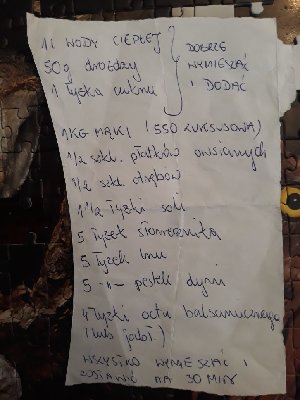 1l WODY CIEPŁEJ
50g drożdży
1 łyżka cukru
DOBRZE
WYMIESZAĆ
I DODAĆ
1KG MĄKI (550 LUKSUSOWA)
1/2 szkl. płatków owsianych
1/2 szkl. otrębów
1 1/2 łyżki soli
5 łyżek słonecznika
5 łyżek lnu
5 -"- pestek dyni
4 łyżki octu balsamicznego
(lub jabł.)
WSZYSTKO WYMIESZAĆ I
ZOSTAWIĆ NA 30 MIN